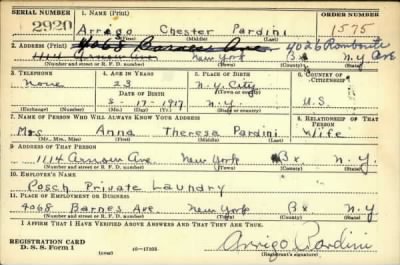 SERIAL NUMBER 1. NAME (Print) ORDER NUMBER
2920 Arrigo Chester Pardini 1575
(First) (Middle) (Last)
2. ADDRESS (Print) 4068 Barnes Ave 4026 Ave
1114 Arnow Ave. New York Bx N.Y
(Number and street or R. F. D. number) (Town) (County) (State)
3. TELEPHONE 4. AGE IN YEARS 5. PLACE OF BIRTH 6. COUNTRY OF CITIZENSHIP
None 23 N.Y. City
DATE OF BIRTH (Town or county)
3-17-1917 N.Y. U.S.
(Exchange) (Number) (Mo.) (Day) (Yr.) (State or country)
7. NAME OF PERSON WHO WILL ALWAYS KNOW YOUR ADDRESS 8. RELATIONSHIP OF THAT PERSON
Mrs Anna Theresa Pardini Wife
(Mr., Mrs., Miss) (First) (Middle) (Last)
9. ADDRESS OF THAT PERSON
1114 Arnow Ave. New York Bx N.Y.
(Number and street or R. F. D. number) (Town) (County) (State)
10. EMPLOYER'S NAME
Posch Private Laundry
11. PLACE OF EMPLOYMENT OR BUSINESS
4068 Barnes Ave. New York Bx N.Y
(Number and street or R. F. D. number) (Town) (County) (State)
I AFFIRM THAT I HAVE VERIFIED ABOVE ANSWERS AND THAT THEY ARE TRUE.
REGISTRATION CARD
D. S. S. Form 1 16-17105 Arrigo Pardini
(Registrant's signature)